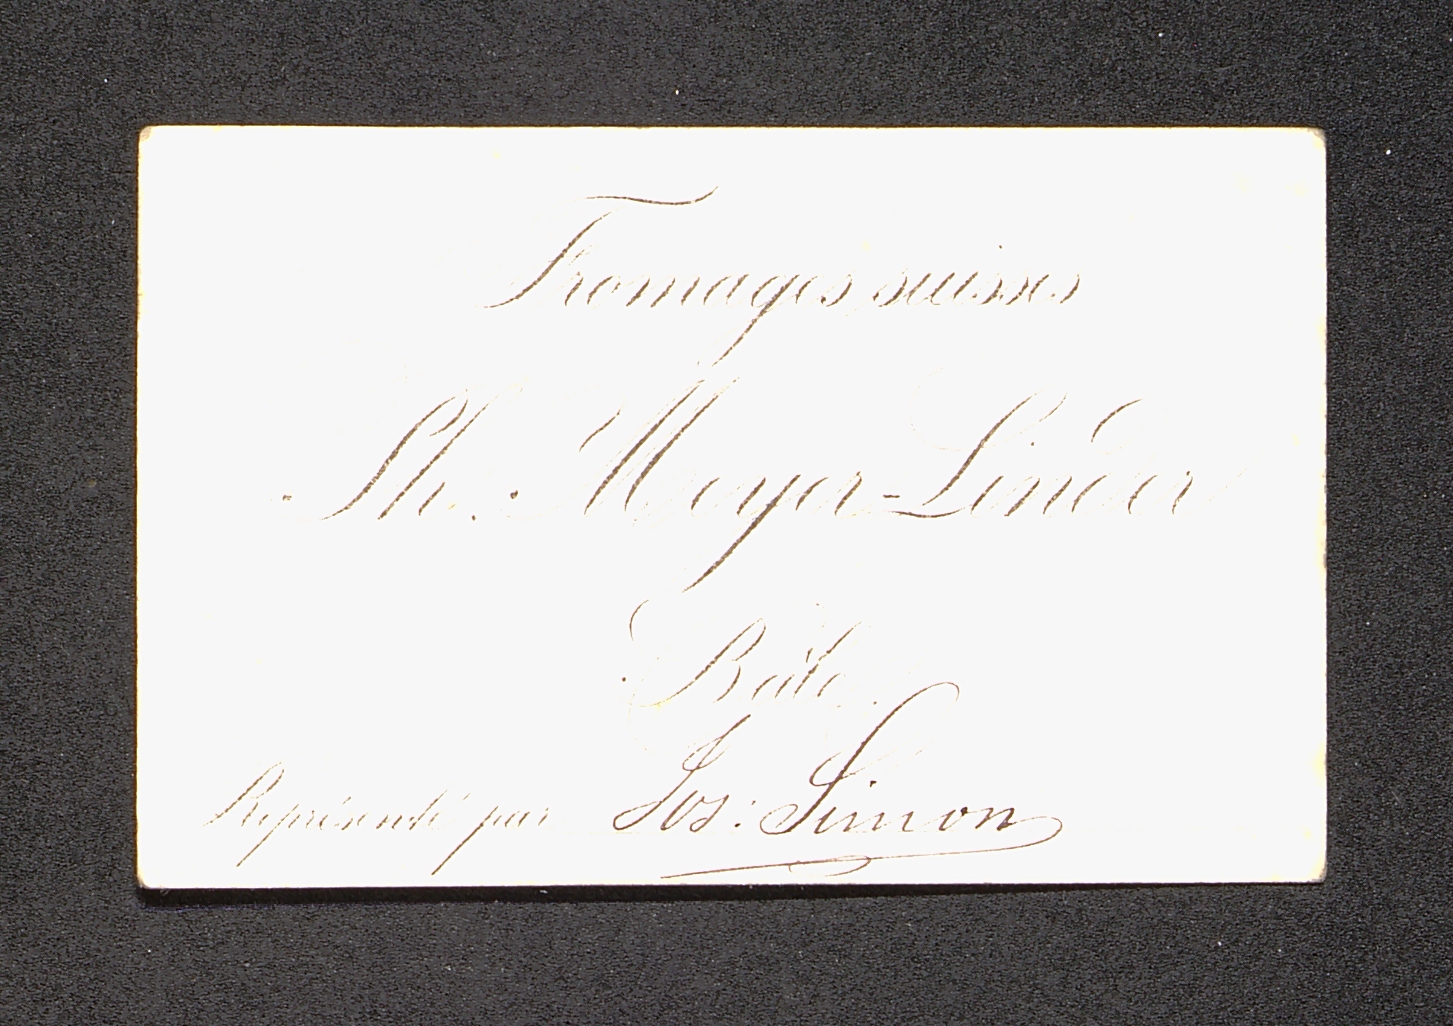 Fromages suisses
Th. Meyer-Linder
Bâle.
Représenté par Jos: Simon